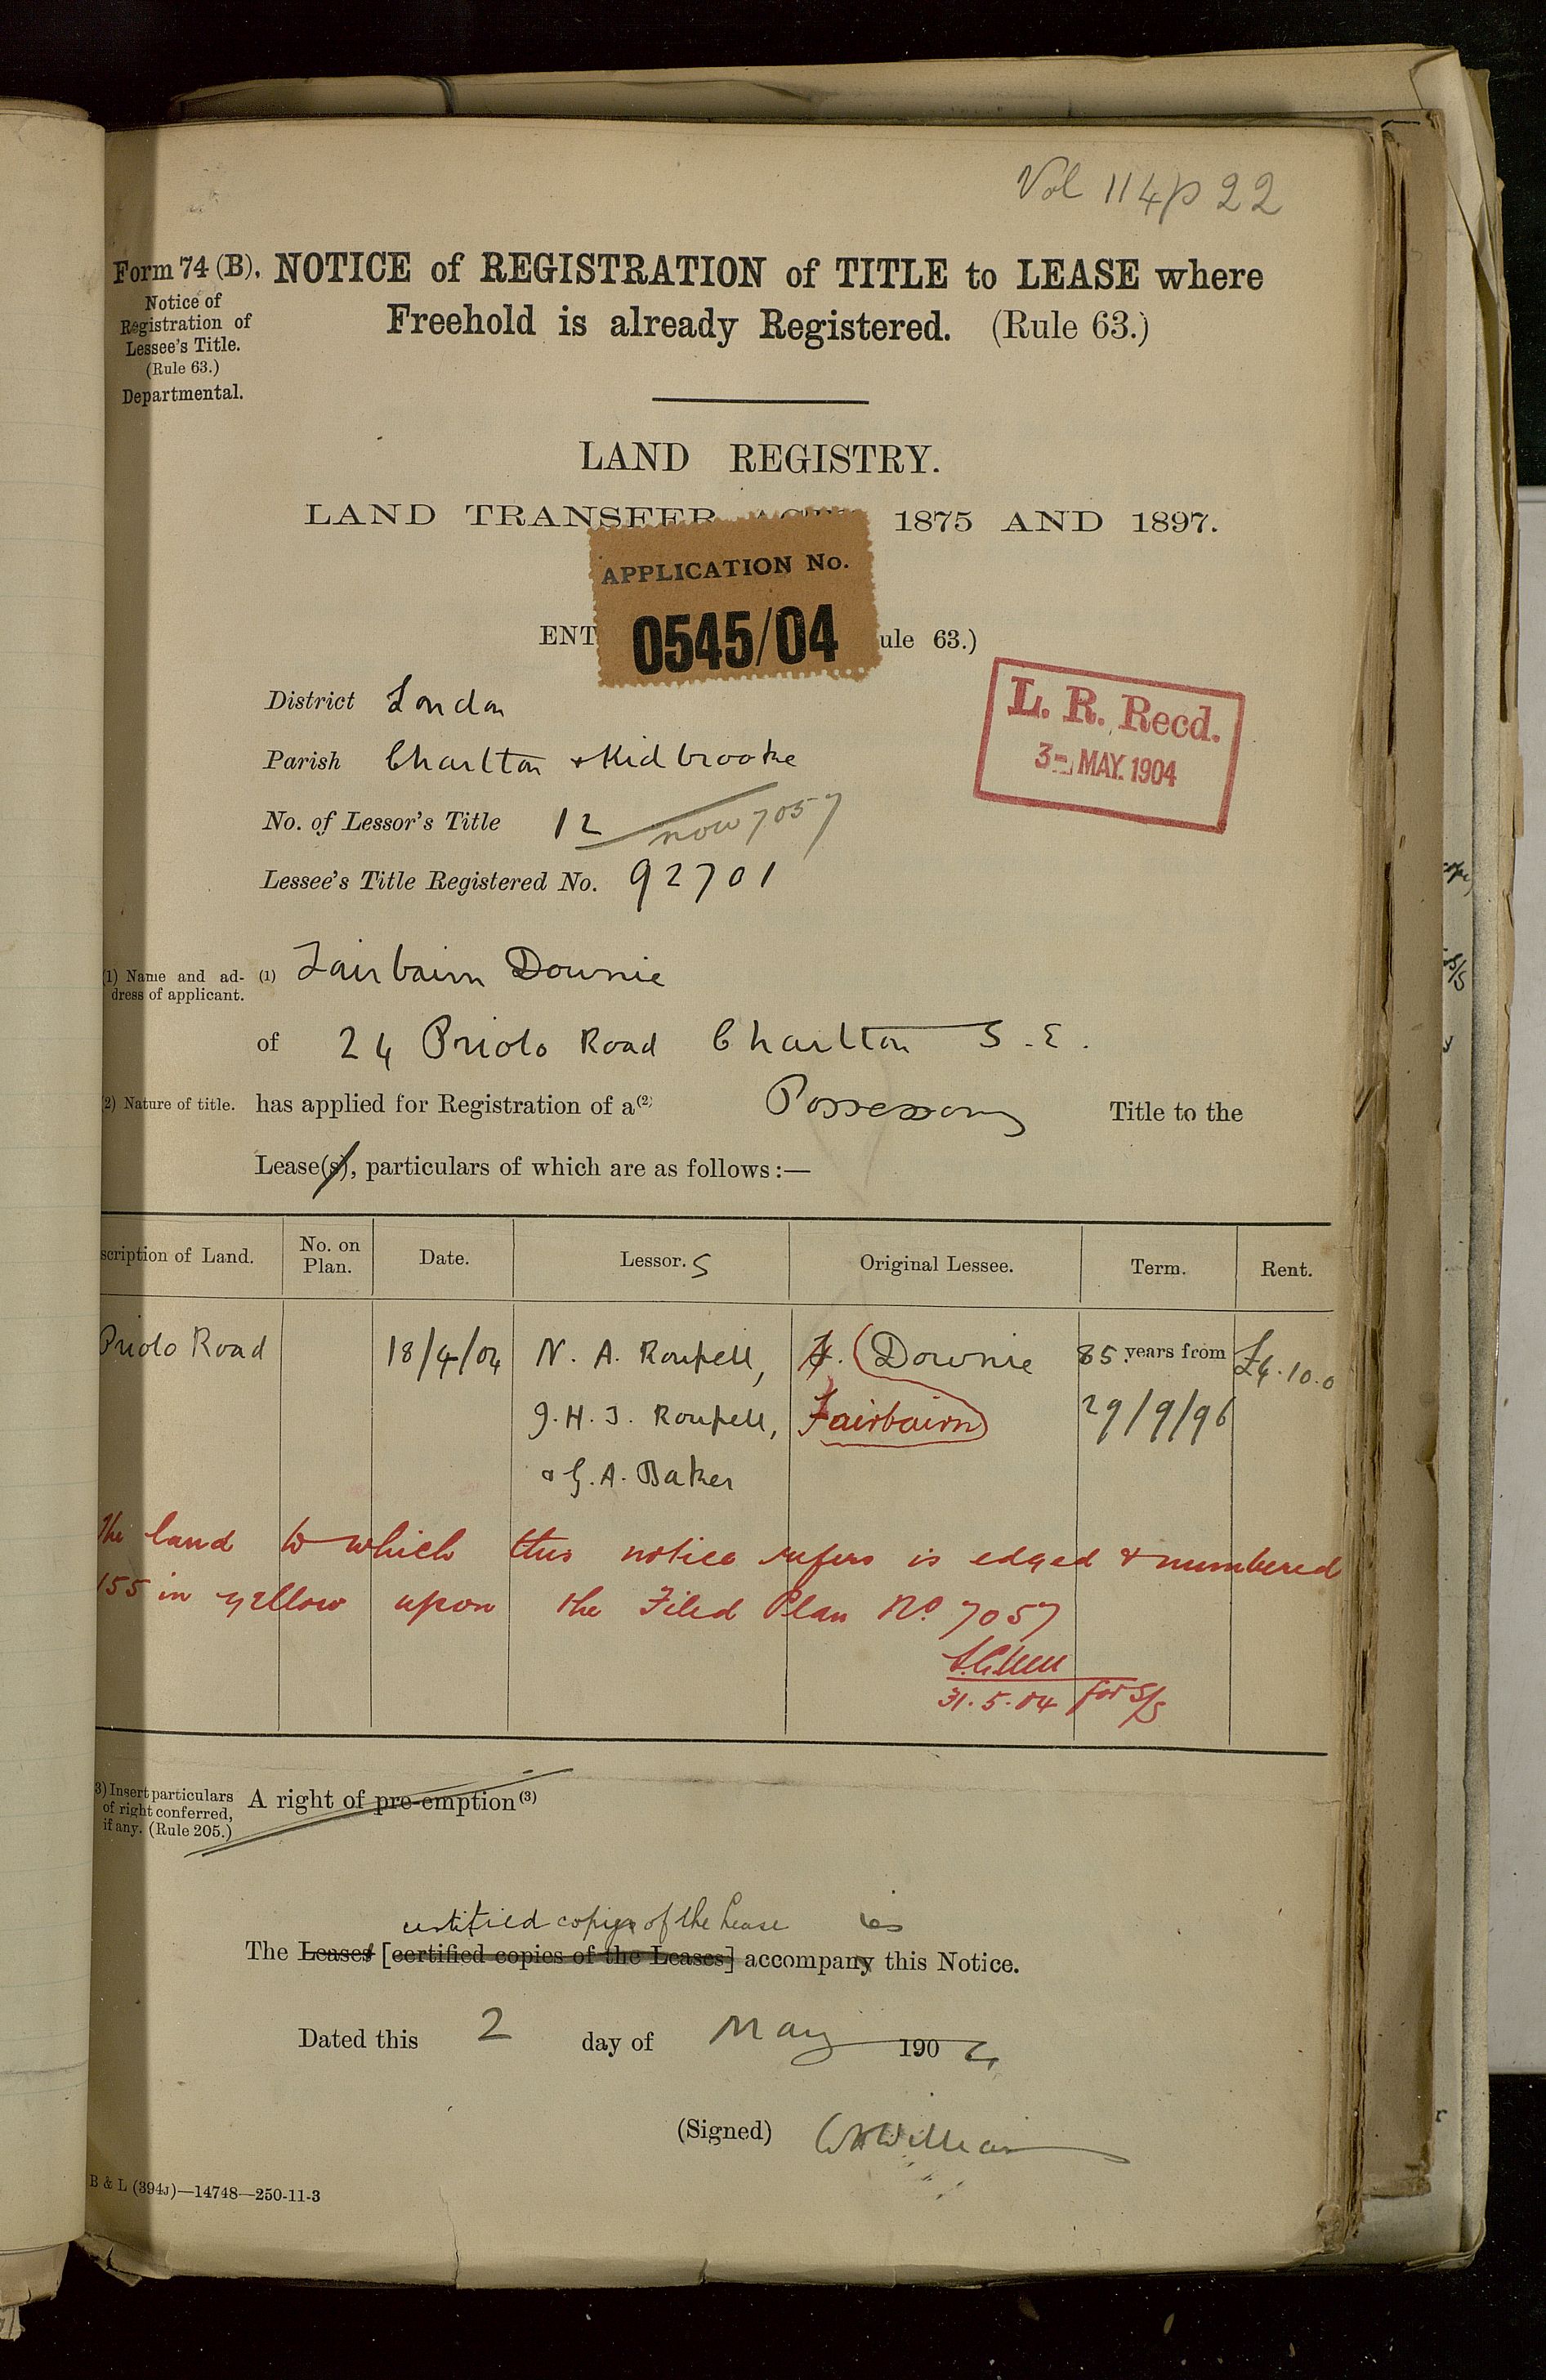 Vol 114 p 22
Form 74 (B).
Notice of
Registration of
Lessee's Title.
(Rule 63.)
Departmental.
NOTICE of REGISTRATION of TITLE to LEASE where
Freehold is already Registered. (Rule 63.)
LAND REGISTRY.
LAND TRANSFER 1875 AND 1897.
APPLICATION No.
0545/04
ENT ule 63.)
L. R. Recd.
3 - MAY. 1904
District London
Parish Charlton & Kidbrooke
No. of Lessor's Title 12 now 7057
Lessee's Title Registered No. 92701
(1) Name and ad-
dress of applicant.
(1) Fairbairn Downie
of 24 Priolo Road Charlton S.E.
(2) Nature of title.
has applied for Registration of a(2) Possessory Title to the
Lease(s), particulars of which are as follows :—
scription of Land. No. on Plan. Date. Lessor.s Original Lessee. Term. Rent.
Priolo Road 18/4/04 N. A. Roupell, F. Downie 85 years from £4.10.0
J. H. J. Roupell, Fairbairn 29/9/96
& G. A. Baker
The land to which this notice refers is edged & numbered
155 in yellow upon the Filed Plan No 7057
31.5.04 for S/S
3) Insert particulars
of right conferred,
if any. (Rule 205.)
A right of pre-emption(3)
certified copy of the Lease ies
The Leases [certified copies of the Leases] accompany this Notice.
Dated this 2 day of May 1904
(Signed) W Williams
B & L (394J)—14748—250-11-3